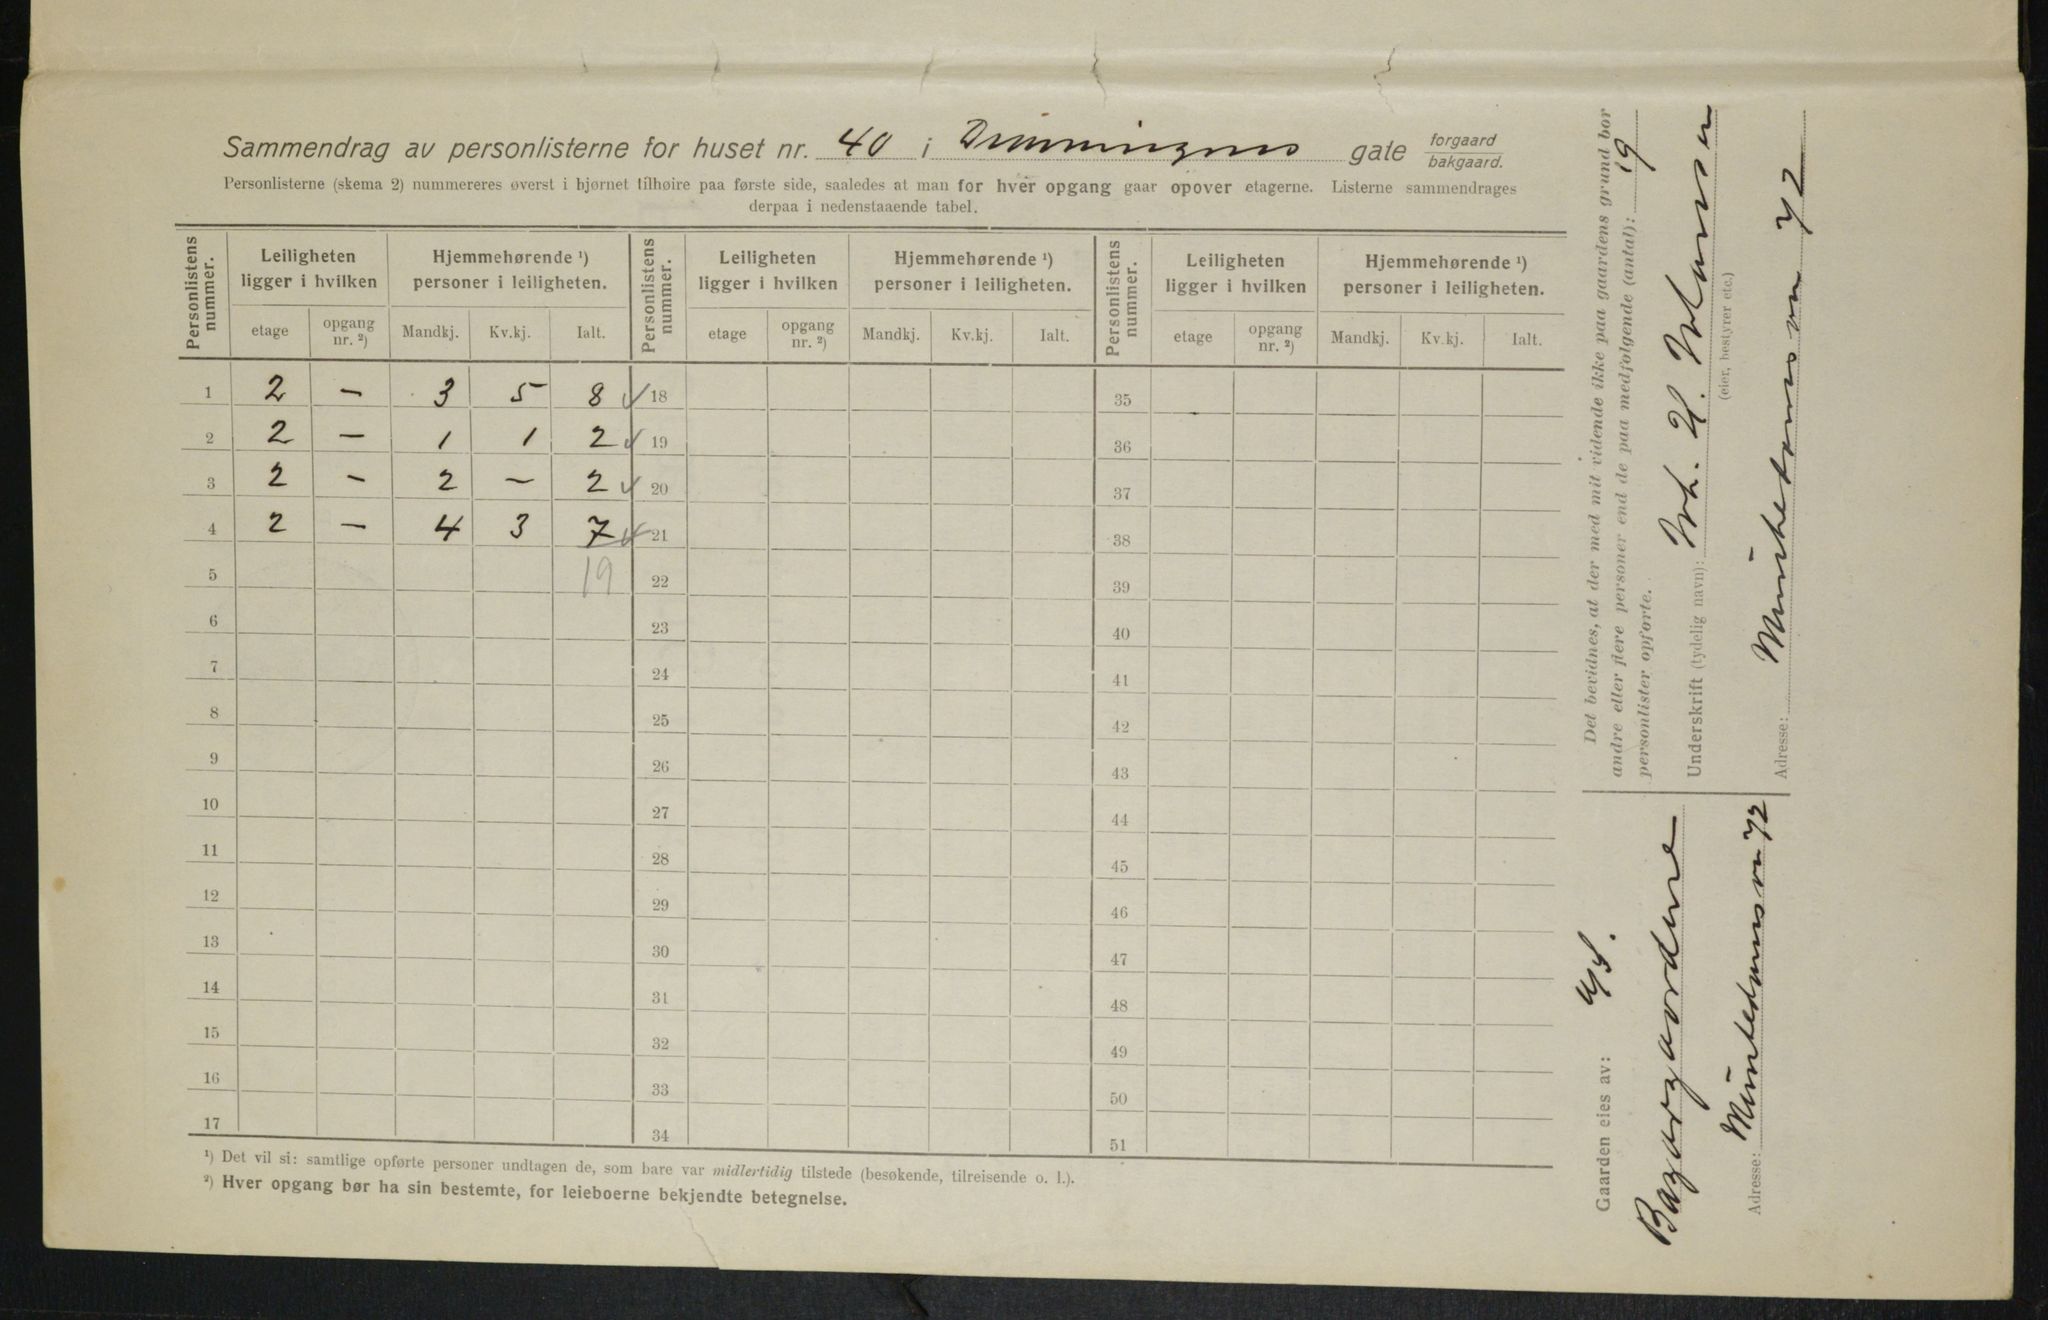 Sammendrag av personlisterne for huset nr. 40 i Dronningens gate forgaard bakgaard.
Personlisterne (skema 2) nummereres øverst i hjørnet tilhøire paa første side, saaledes at man for hver opgang gaar opover etagerne. Listerne sammendrages
derpaa i nedenstaaende tabel.
Personlistens nummer. Leiligheten ligger i hvilken Hjemmehørende ¹) personer i leiligheten. Personlistens nummer. Leiligheten ligger i hvilken Hjemmehørende ¹) personer i leiligheten. Personlistens nummer. Leiligheten ligger i hvilken Hjemmehørende ¹) personer i leiligheten.
etage opgang nr. ²) Mandkj. Kv.kj. Ialt. etage opgang nr. ²) Mandkj. Kv.kj. Ialt. etage opgang nr. ²) Mandkj. Kv.kj. Ialt.
1 2 – 3 5 8 ✓ 18 35
2 2 – 1 1 2 ✓ 19 36
3 2 – 2 – 2 ✓ 20 37
4 2 – 4 3 7 ✓ 21 38
5 19 22 39
6 23 40
7 24 41
8 25 42
9 26 43
10 27 44
11 28 45
12 29 46
13 30 47
14 31 48
15 32 49
16 33 50
17 34 51
¹) Det vil si: samtlige opførte personer undtagen de, som bare var midlertidig tilstede (besøkende, tilreisende o. l.).
²) Hver opgang bør ha sin bestemte, for leieboerne bekjendte betegnelse.
Det bevidnes, at der med mit vidende ikke paa gaardens grund bor
andre eller flere personer end de paa medfølgende (antal): 19
personlister opførte.
Underskrift (tydelig navn):
(eier, bestyrer etc.)
Adresse: 72
Gaarden eies av: A/S.
Bazargaardene
Adresse: 72